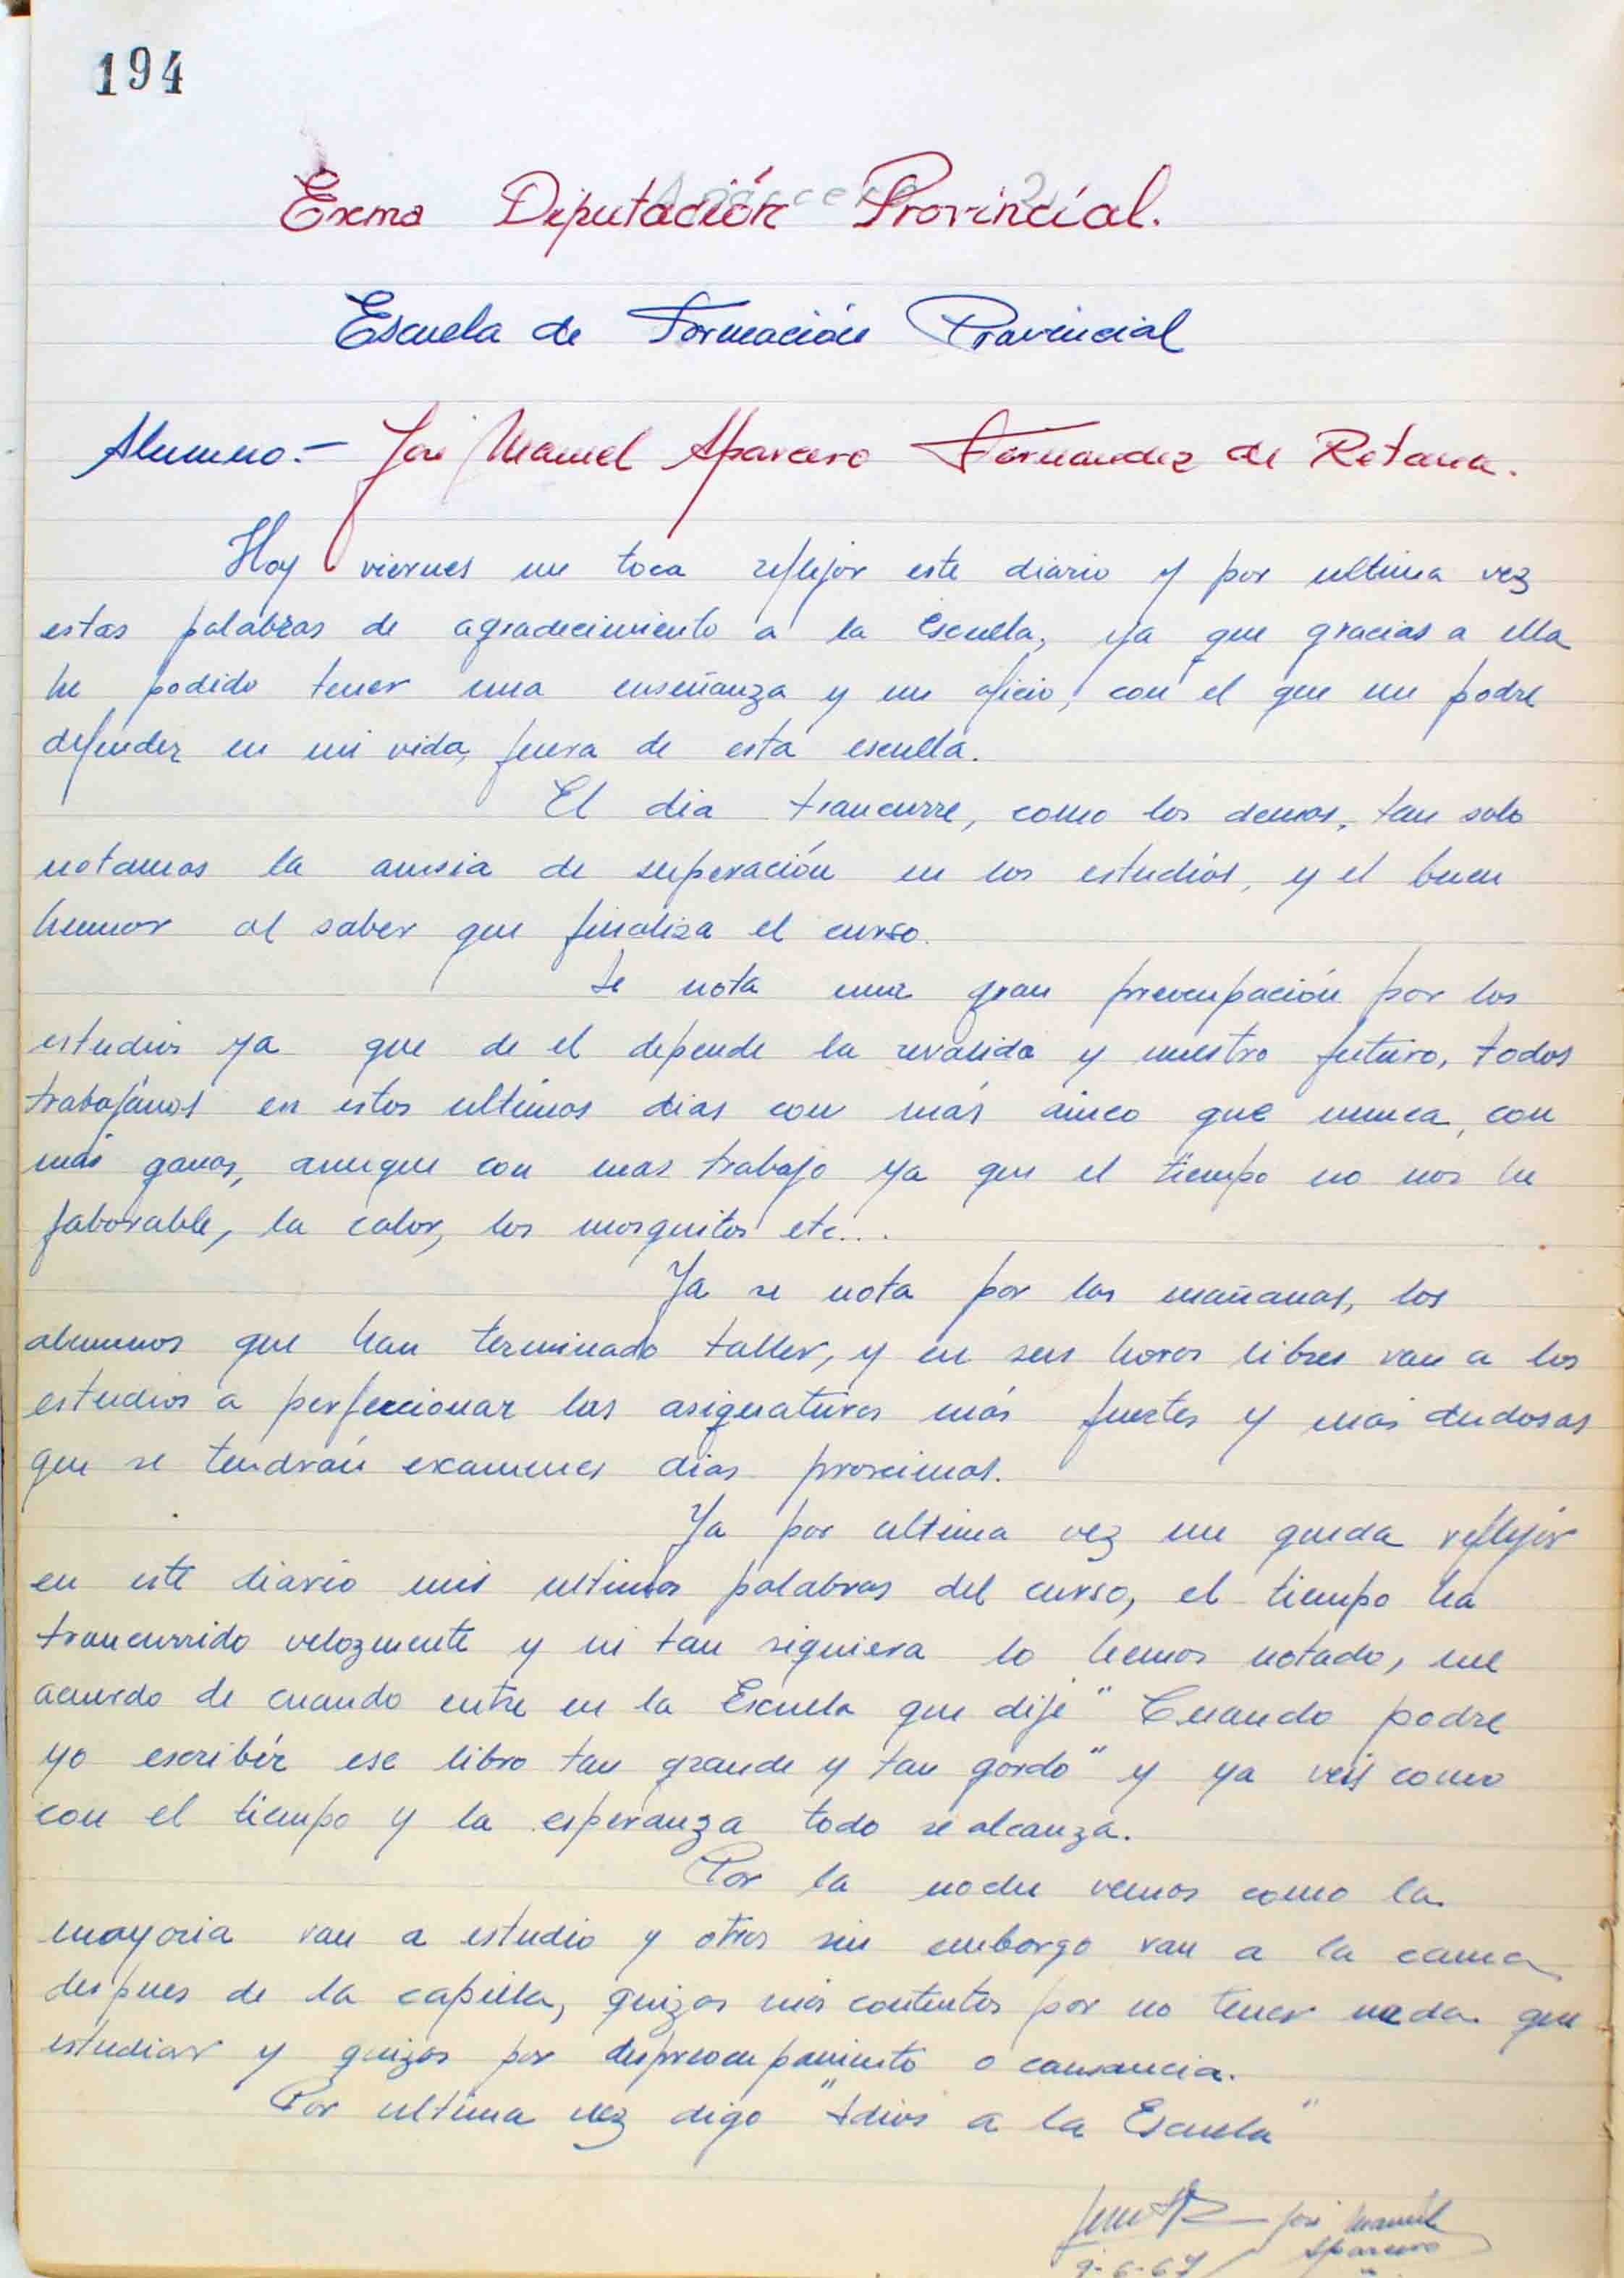 194
Exema Diputación Provincial.
Escuela de Formación Provincial
Alumno.- José Manuel Aparcero Fernandez de Retana.
Hoy viernes me toca reflejar este diario y por ultima vez
estas palabras de agradecimiento a la Escuela, ya que gracias a ella
he podido tener una enseñanza y un oficio, con el que me podre
defender en mi vida, fuera de esta escuela.
El dia trancurre, como los demas, tan solo
notamos la ansia de superación en los estudiós, y el buen
humor al saber que finaliza el curso.
Se nota una gran preocupación por los
estudios ya que de el depende la revalida y nuestro futuro, todos
trabajámos en estos ultimos dias con más ainco que nunca, con
más ganas, aunque con mas trabajo ya que el tiempo no nos he
faborable, la calor, los mosquitos etc...
Ya se nota por las mañanas, los
alumnos que han terminado taller, y en sus horas libres van a los
estudios a perfeccionar las asignaturas más fuertes y más dudosas
que se tendrán examenes dias proximos.
Ya por ultima vez me queda reflejar
en este diario mis ultimas palabras del curso, el tiempo ha
trancurrido velozmente y ni tan siquiera lo hemos notado, me
acuerdo de cuando entre en la Escuela que dije "Cuando podre
yo escribír ese libro tan grande y tan gordo" y ya veis como
con el tiempo y la esperanza todo se alcanza.
Por la noche vemos como la
mayoria van a estudio y otros sin embargo van a la cama
despues de la capilla, quizas más contentos por no tener nada que
estudiar y quizas por despreocupamiento o cansancia.
Por ultima vez digo "Adios a la Escuela"
José Manuel
Aparcero